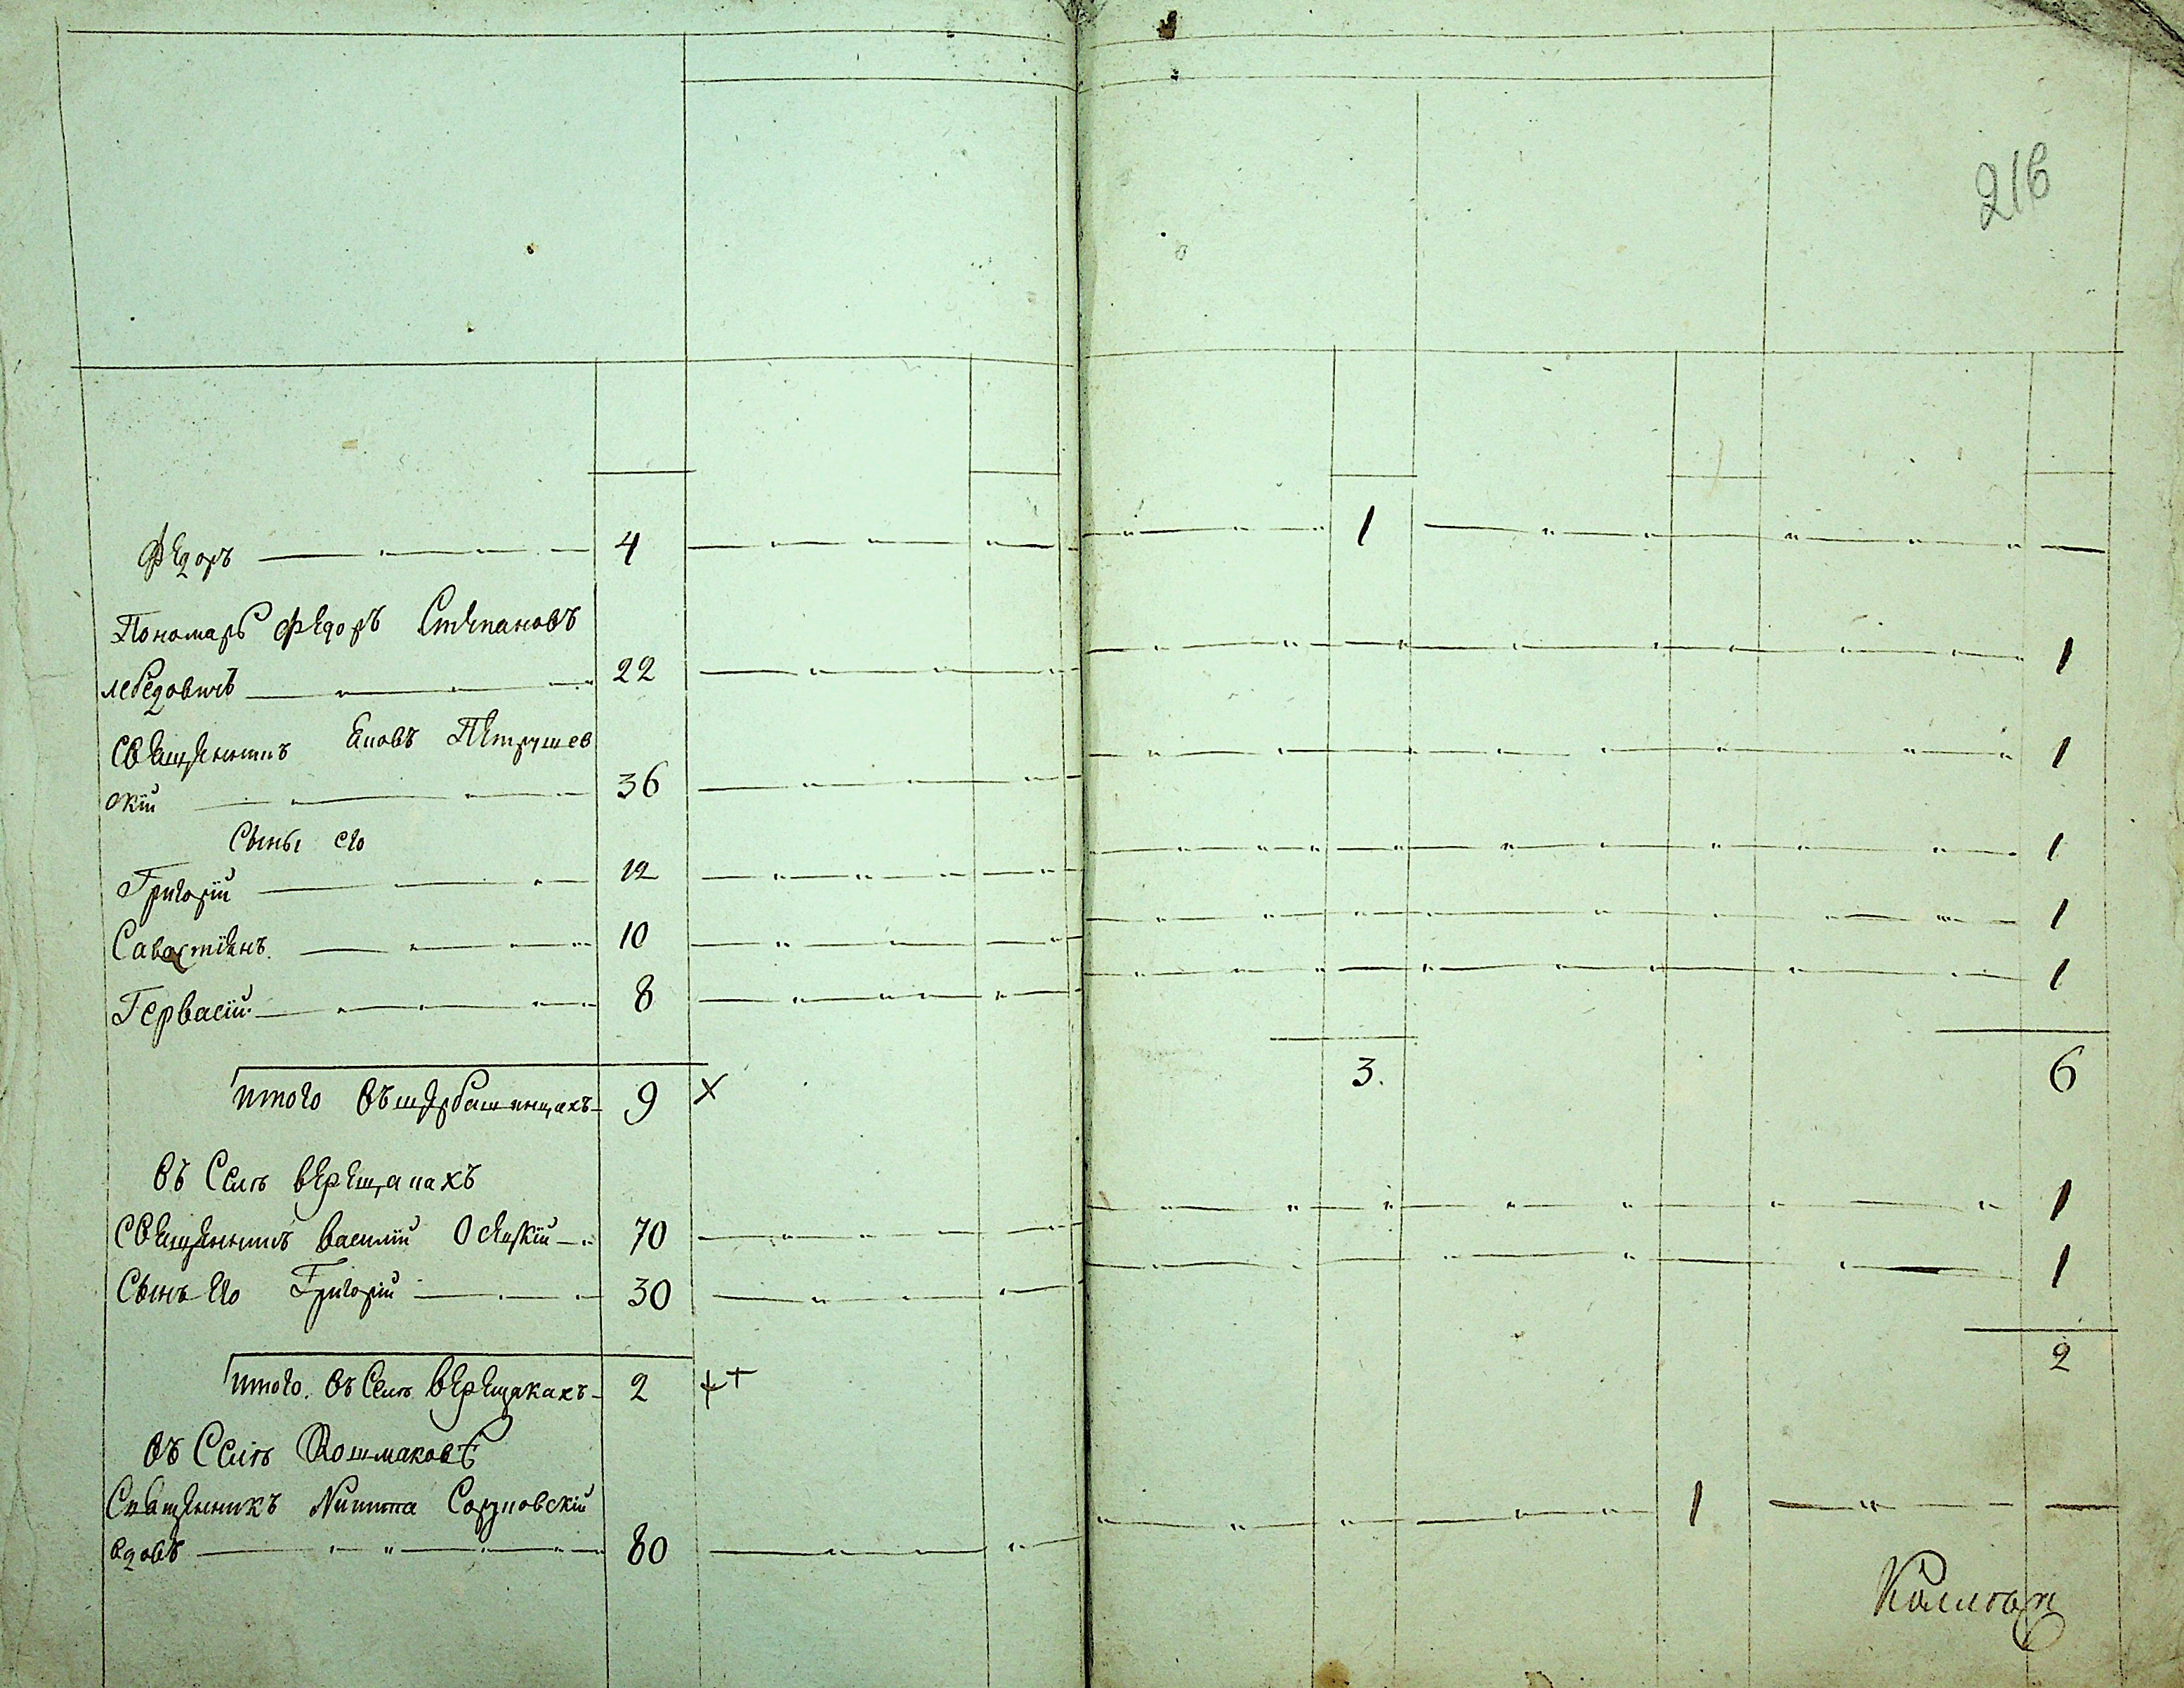 216
Федоръ 4 1
Пономарь Федоръ Степановъ
лебедовичъ 22 1
Священникъ Яковъ Петрушев
скій 36 1
Сыны его
Григорій 12 1
Савостіянъ 10 1
Гервасій 8 1
итого въ щербашинцахъ 9 х 3. 6
Въ Селѣ верещакахъ
Священникъ василій 70 1
Сынъ его Григорій 30 1
итого. въ Селѣ верещакахъ 2 2
Въ Селѣ Кошмаковѣ
Священникъ Никита
вдовъ 80 1